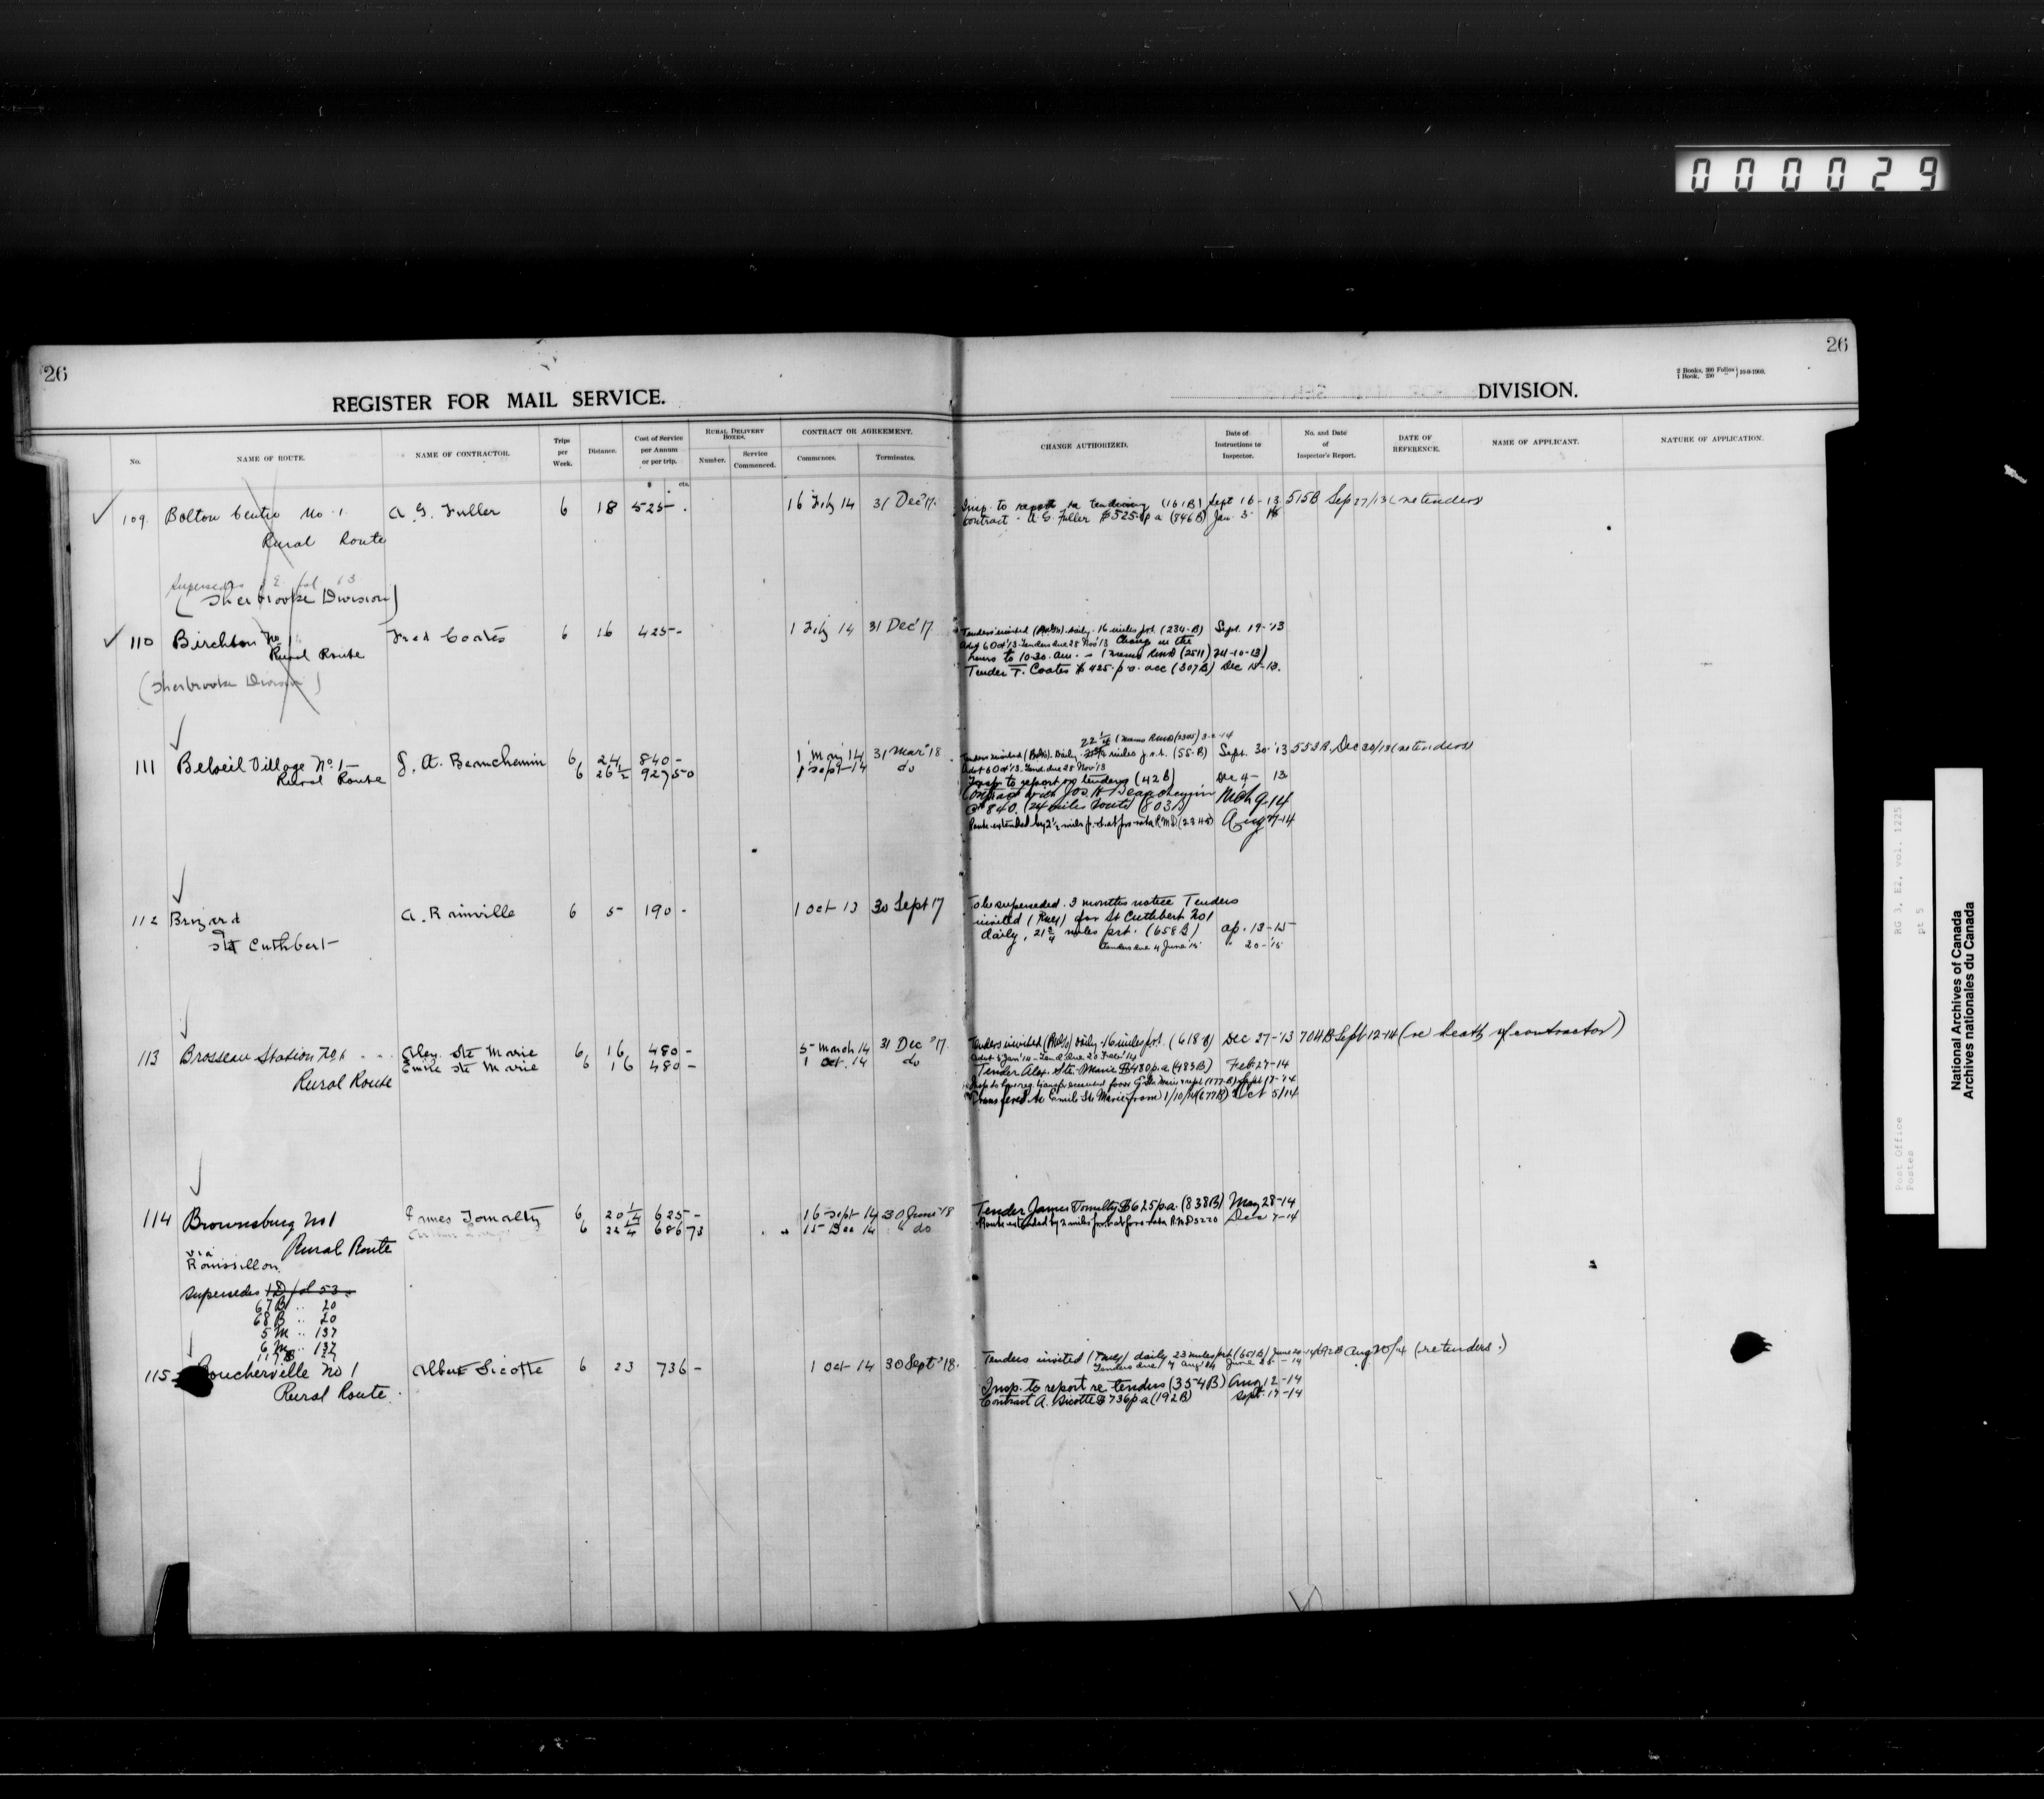 000029
26
26
2 Books, 300 Folios
1 Book, 250 "
10-9-1909.
REGISTER FOR MAIL SERVICE.
DIVISION.
No.
NAME OF ROUTE.
NAME OF CONTRACTOR.
Trips per Week.
Distance.
Cost of Service per Annum or per trip.
$ cts.
RURAL DELIVERY BOXES.
Number.
Service Commenced.
CONTRACT OR AGREEMENT.
Commences.
Terminates.
CHANGE AUTHORIZED.
Date of Instructions to Inspector.
No. and Date of Inspector's Report.
DATE OF REFERENCE.
NAME OF APPLICANT.
NATURE OF APPLICATION.
109. Bolton Centre No 1. A. G. Fuller 6 18 525- 16 Feby 14 31 Dec '17. Insp. to report re tendering (161B) Sept 16-13 515B Sep 27/13 (re tenders
Rural Route contract - A. G. Fuller $525 p a (546B) Jan. 3-
Supersedes
(Sherbrooke Division)
110 Birchton No 1 Fred Coates 6 16 425- 1 Feby 14 31 Dec '17 Tenders invited daily 16 miles p.r.t. (234-B) Sept. 19-'13
Rural Route Advt 6 Oct '13 Tenders due 28 Nov '13 Change in the
hours to 10.30. am. (2511) 24-10-13)
(Sherbrooke Division) Tender F. Coates $425 p a. acc (307B) Dec 15-13.
22 1/4 (2305)
111 Beloeil Village No. 1- J. A. Beauchemin 6 24 840- 1 May 14 31 Mar '18 Tenders invited Daily miles p.r.t. (55-B) Sept. 30-'13 553B. Dec 30/13 (re tenders)
Rural Route 6 26 1/2 927 50 1 Sept-14 do Advt 6 Oct '13. Tend. due 28 Nov '13
Insp. to report on tenders (42B) Dec 4- 13
Contract with Jos. A. Beauchemin
@ 840. (24 miles route) (803B) Mch 9-14
Route extended by 2 1/2 miles p. r.t. at pro-rata R.M.D (2348) Aug 7-14
112 Brizard A. Rainville 6 5 190- 1 Oct 13 30 Sept 17 To be superseded. 3 months notice Tenders
& invited (Rwy) for St Cuthbert No 1
St Cuthbert daily, 21 3/4 miles p.r.t. (658B) ap. 13-15
Tenders due 4 June '15 " 20-'15
113 Brosseau Station No 1 Alex. Ste Marie 6 16 480- 5 March 14 31 Dec '17. Tenders invited daily 16 miles p.r.t. (618B) Dec 27-'13 704B Sept 12-14 (re death of contractor)
Emile Ste Marie 6 16 480- 1 Oct. 14 do
Rural Route Tender Alex. Ste. Marie $480 p.a (483B) Feb 27-14
Transfered to Emile Ste Marie from 1/10/14 (677B) Oct 5/14
114 Brownsburg No 1 James Tomalty 6 20 1/4 625- 16 Sept 14 30 June '18 Tender James Tomalty $625 p.a. (838B) May 28-14
6 22 1/4 686 73 15 Dec 14 " do Route extended by 2 miles p.r.t. at pro-rata R.M.D 5220 Dec 7-14
Rural Route
via
Roussillon.
Supersedes 1 D fol 53
67 B .. 20
68 B .. 20
5 M .. 137
6 M .. 137
115 Boucherville No 1 Albert Sicotte 6 23 736- 1 Oct-14 30 Sept '18. Tenders invited daily 23 miles p.r.t (651B) June 20-14 692B Aug 20/14 (re tenders.)
Rural Route. Tenders due 7 Aug '14 June 26-14
Insp. to report re tenders (354B) Aug 12-14
Contract A. Sicotte $736 p a (192B) Sept. 17-14
RG 3, E2, vol. 1225
pt 5
Post Office
Postes
National Archives of Canada
Archives nationales du Canada